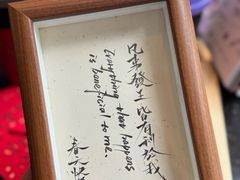 凡所發生皆有利於我
Everything that happens
is beneficial to me.